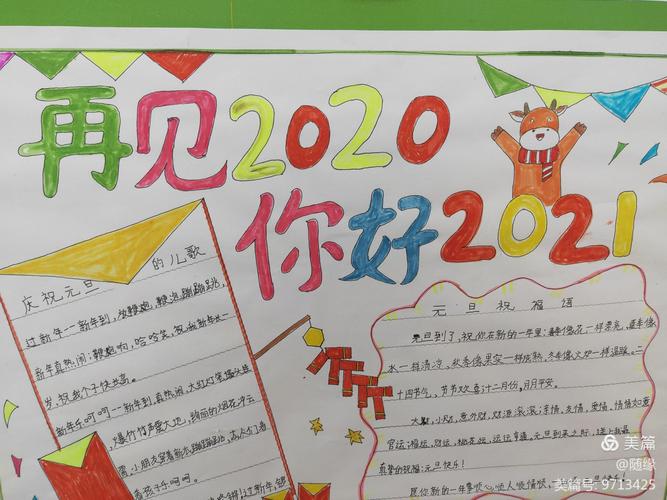 再见2020
你好2021
庆祝元旦的儿歌
过新年一新年到，放鞭炮，鞭炮蹦蹦跳，
新年真热闹；鞭炮响，哈哈笑，祝我新年长一
岁，祝我个子快长高。
新年乐呵呵一新年到，真热闹，大红灯笼
爆竹声声爱大地，绚丽的烟花
元旦祝福语
元旦到了，祝你在新的一年里：春季像花一样漂亮，夏季像
水一样清凉，秋季像果实一样成熟，冬季像火炉一样温暖。二
十四节气，节节欢喜；十二月份，月月平安。
大财，小财，意外财，财源滚滚；亲情，友情，爱情，情情如意
官运，福运，财运，桃花运，运运亨通，元旦到来之际，送上最
真挚的祝福：元旦快乐！
愿你新的一年事顺心
美篇
@随缘
美篇号：9713425